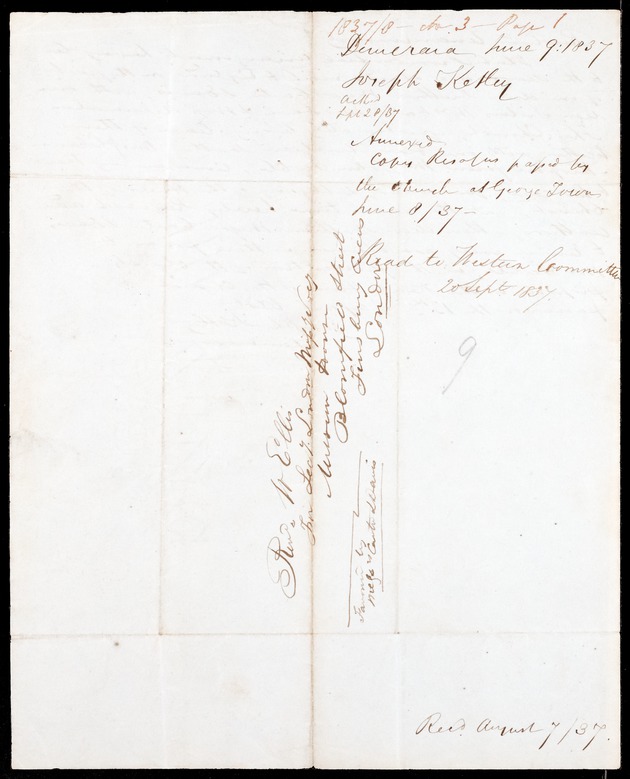 1837/8 — No. 3 — Page 1
Demerara June 9. 1837
Joseph Ketley
Ackd
Sept 28/37
Annexed
Copy Resolns passed by
the Church at George Town
June 8/37 —
Read to Western Committee
20 Sept 1837.
9
Revd W Ellis
For. Secy. London Missy Socy
Mission House
Blomfield Street
Finsbury Circus
London
Favoured by
Messrs
Recd. August 7/37.